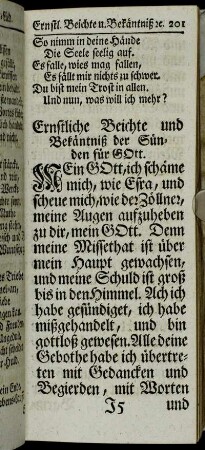 Ernstl. Beichte u. Bekäntniß ꝛc. 201
So nimm in deine Hände
Die Seele seelig auf.
Es falle, wies mag fallen,
Es fällt mir nichts zu schwer.
Du bist mein Trost in allen.
Und nun, was will ich mehr?
Ernstliche Beichte und
Bekäntniß der Sün-
den für GOtt.
MEin GOtt, ich schäme
mich, wie Esra, und
scheue mich, wie der Zöllner,
meine Augen aufzuheben
zu dir, mein GOtt. Denn
meine Missethat ist über
mein Haupt gewachsen,
und meine Schuld ist groß
bis in den Himmel. Ach ich
habe gesündiget, ich habe
mißgehandelt, und bin
gottloß gewesen. Alle deine
Gebothe habe ich übertre-
ten mit Gedancken und
Begierden, mit Worten
J5 und